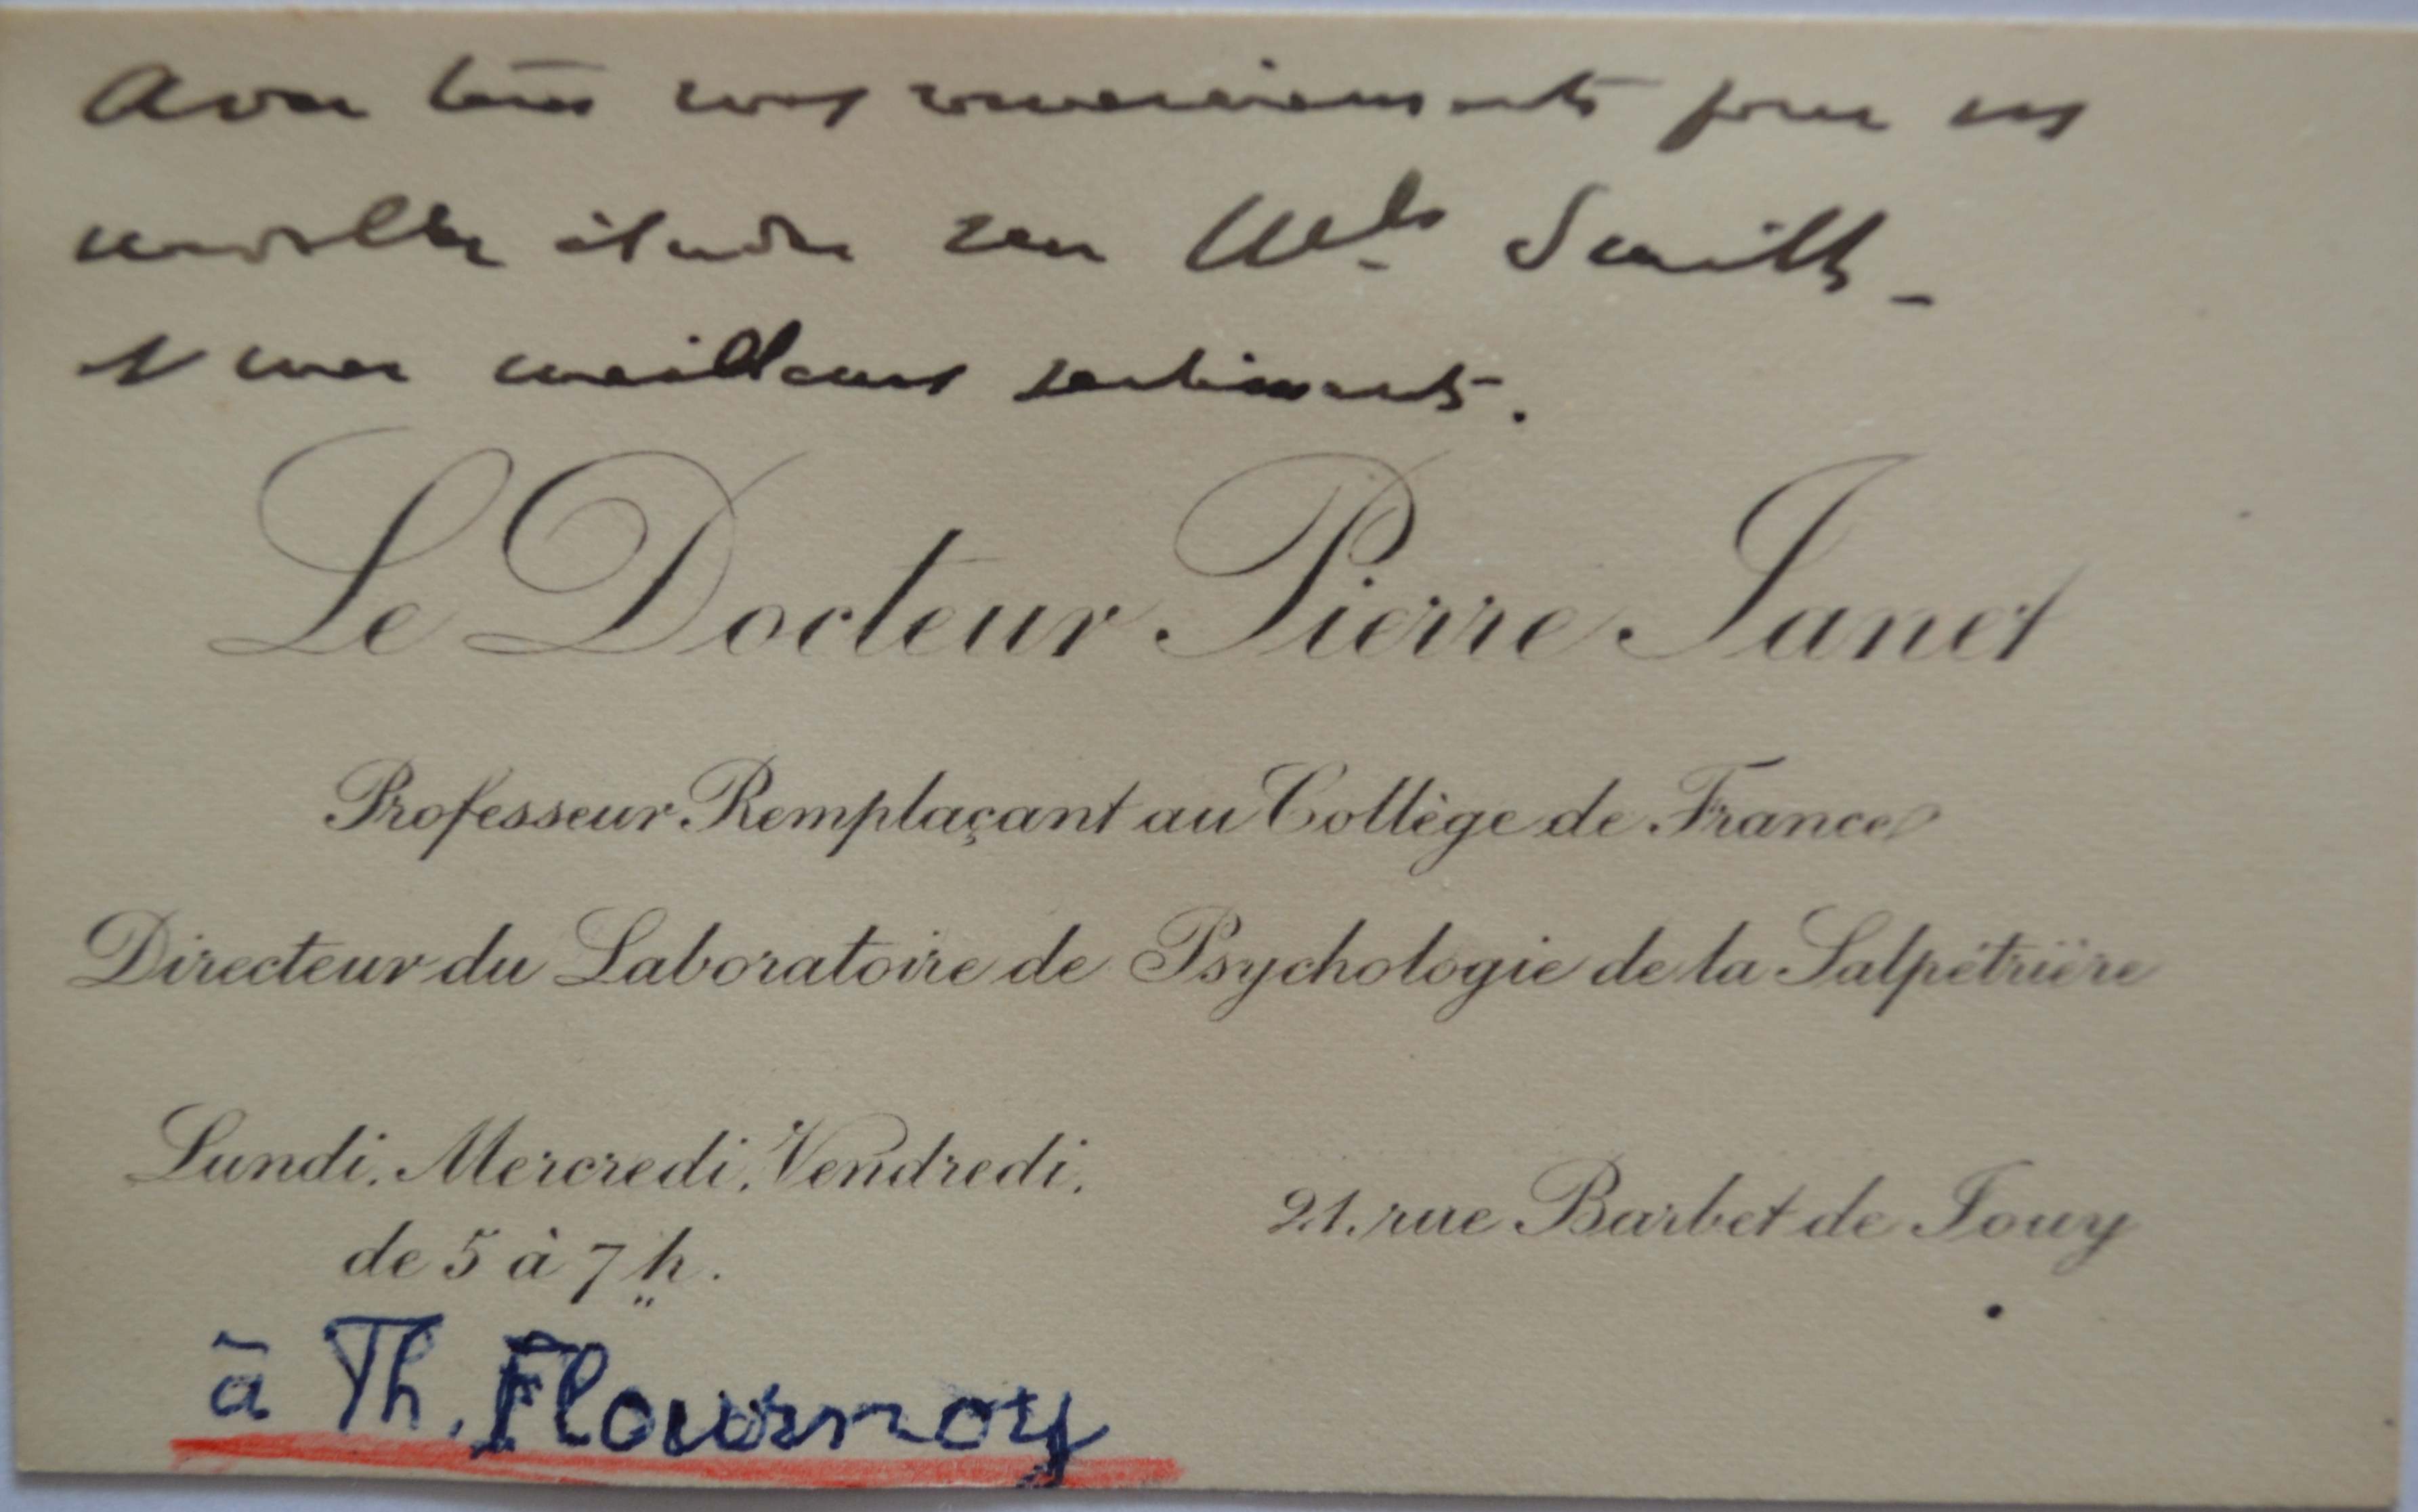 Avec tous mes remerciements pour sa
nouvelle étude sur Mlle Smith -
et mes meilleurs sentiments.
Le Docteur Pierre Janet
Professeur Remplaçant au Collège de France
Directeur du Laboratoire de Psychologie de la Salpêtrière
Lundi, Mercredi, Vendredi,
de 5 à 7 h.
21, rue Barbet de Jouy
à Th. Flournoy